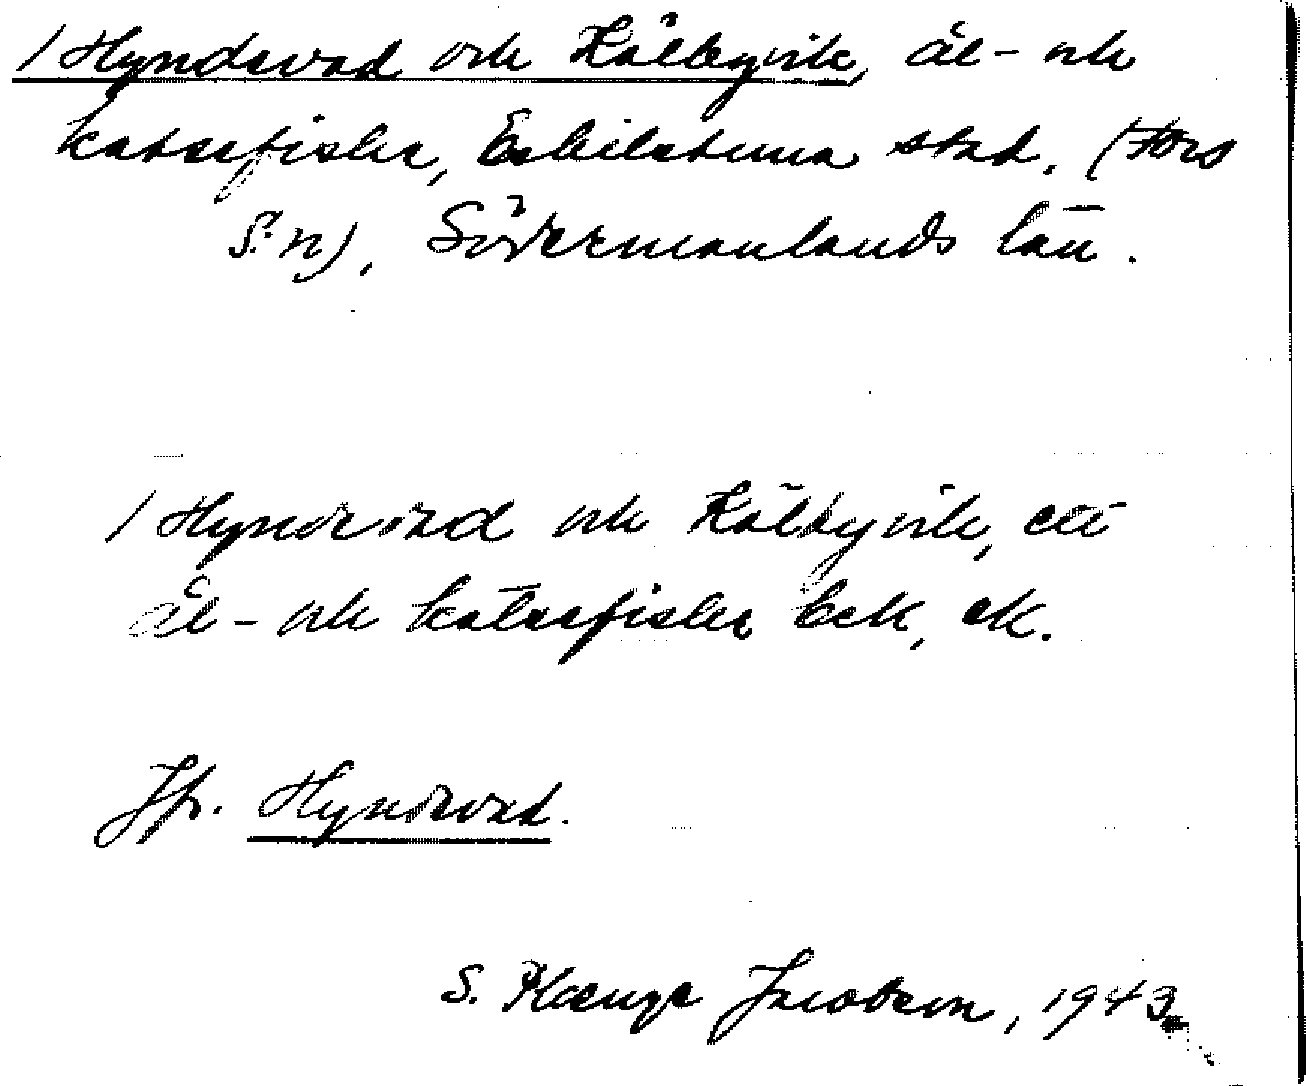 / Hyndevad och Kälbyvik, ål- och
katsefiske, Eskilstuna stad. (Fors
s:n), Södermanlands län.
/ Hyndevad och Kälbyvik, ett
ål- och katsefiske bek, ek.
Jfr. Hyndevad.
S. Jacobson, 1943.